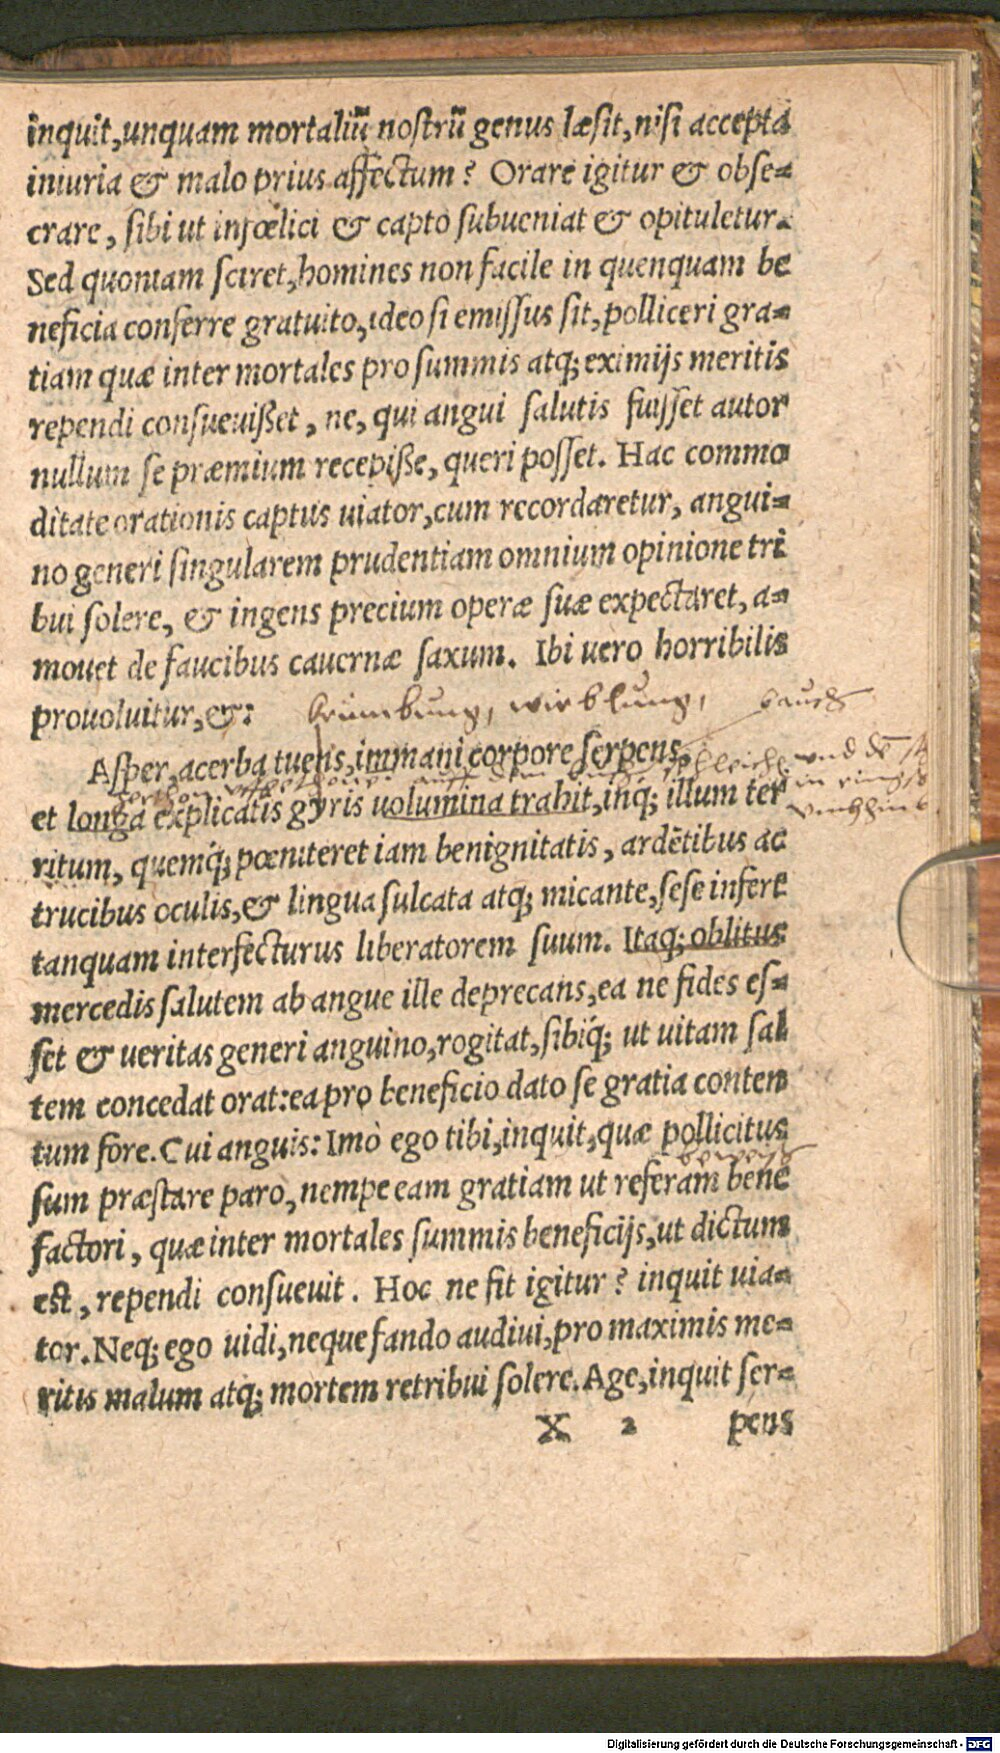 inquit, unquam mortaliũ nostrũ genus læsit, nisi accepta
iniuria & malo prius affectum? Orare igitur & obse=
crare, sibi ut infœlici & capto subueniat & opituletur.
Sed quoniam sciret, homines non facile in quenquam be
neficia conferre gratuito, ideo si emissus sit, polliceri gra=
tiam quæ inter mortales pro summis atq; eximijs meritis
rependi consueuißet, ne, qui angui salutis fuisset autor
nullum se præmium recepiße, queri posset. Hac commo
ditate orationis captus uiator, cum recordaretur, angui=
no generi singularem prudentiam omnium opinione tri
bui solere, & ingens precium operæ suæ expectaret, a=
mouet de faucibus cauernæ saxum. Ibi uero horribilis
prouoluitur, &:
krümbung, wirblung, bauch
Asper, acerba tuens, immani corpore serpens,
und
et longa explicatis gyris uolumina trahit, inq; illum ter
ritum, quemq́; pœniteret iam benignitatis, ardẽtibus ac
trucibus oculis, & lingua sulcata atq; micante, sese infert
tanquam interfecturus liberatorem suum. Itaq; oblitus
mercedis salutem ab angue ille deprecans, ea ne fides es=
set & ueritas generi anguino, rogitat, sibiq́; ut uitam sal
tem concedat orat: ea pro beneficio dato se gratia conten
tum fore. Cui anguis: Imò ego tibi, inquit, quæ pollicitus
sum præstare paro, nempe eam gratiam ut referam bene
factori, quæ inter mortales summis beneficijs, ut dictum
est, rependi consueuit. Hoc ne fit igitur? inquit uia=
tor. Neq; ego uidi, neque fando audiui, pro maximis me=
ritis malum atq; mortem retribui solere. Age, inquit ser=
X 2 pens
Digitalisierung gefördert durch die Deutsche Forschungsgemeinschaft - DFG